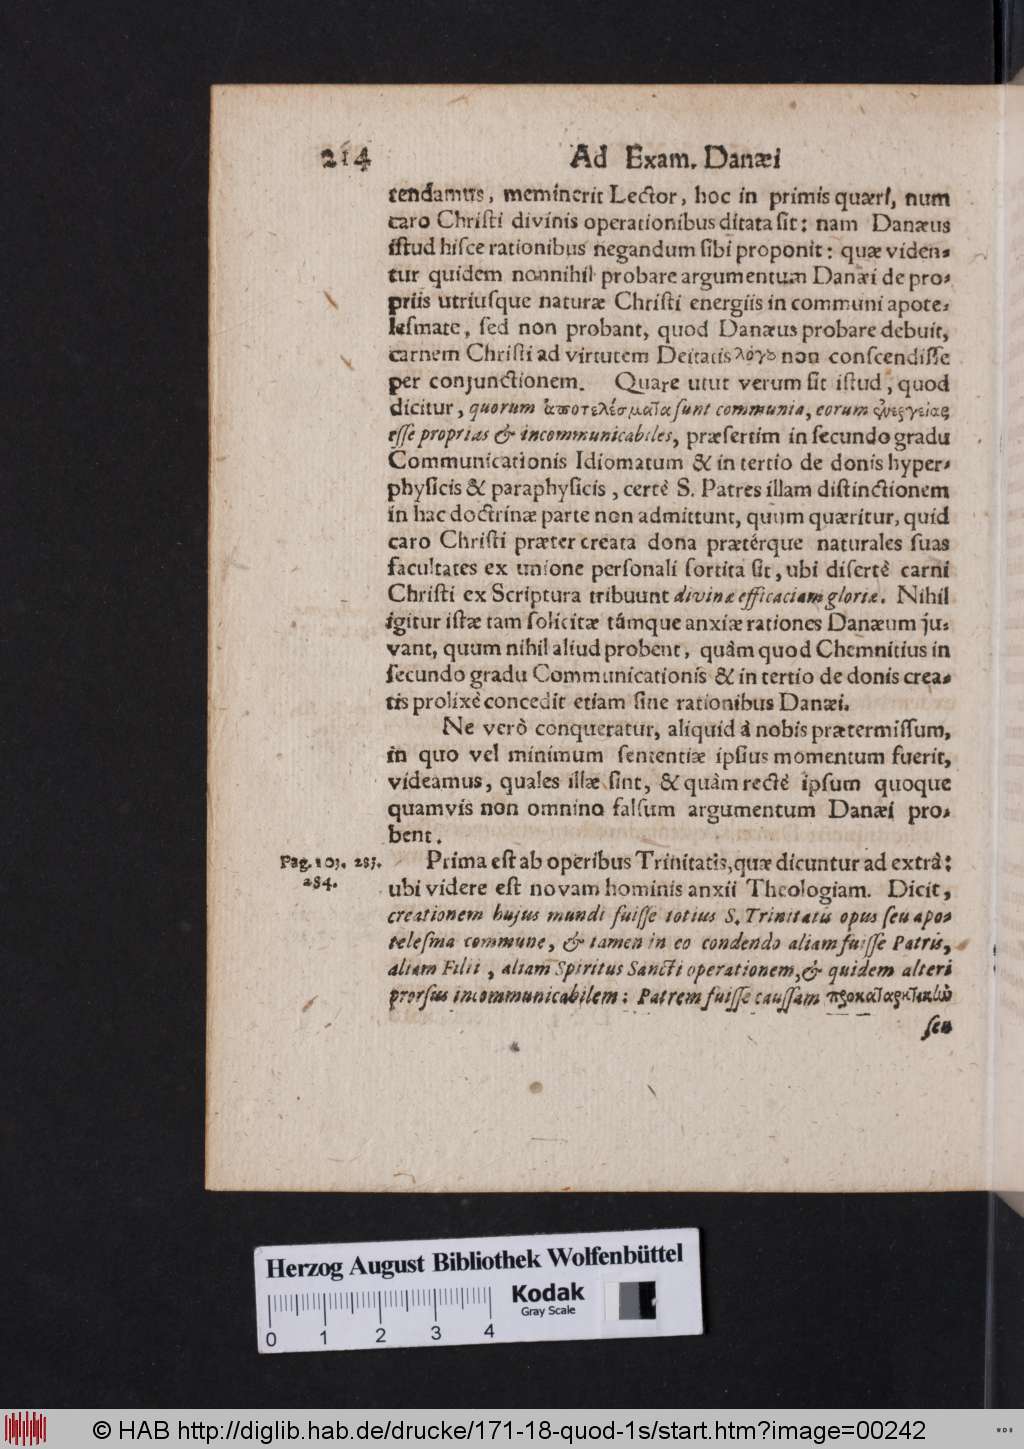 214 Ad Exam. Danæi
tendamus, meminerit Lector, hoc in primis quæri, num
caro Chriſti divinis operationibus ditata ſit: nam Danæus
iſtud hiſce rationibus negandum ſibi proponit: quæ viden-
tur quidem nonnihil probare argumentum Danæi de pro-
priis utriuſque naturæ Chriſti energiis in communi apote-
leſmate, ſed non probant, quod Danæus probare debuit,
carnem Chriſti ad virtutem Deitatis λόγȣ non conſcendiſſe
per conjunctionem. Quare utut verum ſit iſtud, quod
dicitur, quorum ἀποτελέσματα ſunt communia, eorum ἐνεργείας
eſſe proprias & incommunicabiles, præſertim in ſecundo gradu
Communicationis Idiomatum & in tertio de donis hyper-
phyſicis & paraphyſicis, certè S. Patres illam diſtinctionem
in hac doctrinæ parte non admittunt, quum quæritur, quid
caro Chriſti præter creata dona prætérque naturales ſuas
facultates ex unione perſonali ſortita ſit, ubi diſertè carni
Chriſti ex Scriptura tribuunt divinæ efficaciam gloriæ. Nihil
igitur iſtæ tam ſolicitæ támque anxiæ rationes Danæum ju-
vant, quum nihil aliud probent, quàm quod Chemnitius in
ſecundo gradu Communicationis & in tertio de donis crea-
tis prolixè concedit etiam ſine rationibus Danæi.
Ne verò conqueratur, aliquid à nobis prætermiſſum,
in quo vel minimum ſententiæ ipſius momentum fuerit,
videamus, quales illæ ſint, & quàm rectè ipſum quoque
quamvis non omnino falſum argumentum Danæi pro-
bent.
Pag. 103. 283.
284.
Prima eſt ab operibus Trinitatis, quæ dicuntur ad extrà:
ubi videre eſt novam hominis anxii Theologiam. Dicit,
creationem hujus mundi fuiſſe totius S. Trinitatis opus ſeu apo-
teleſma commune, & tamen in eo condendo aliam fuiſſe Patris,
aliam Filii, aliam Spiritus Sancti operationem, & quidem alteri
prorſus incommunicabilem: Patrem fuiſſe cauſſam προκαταρκτικὴν
ſeu
Herzog August Bibliothek Wolfenbüttel
Kodak
Gray Scale
0 1 2 3 4
© HAB http://diglib.hab.de/drucke/171-18-quod-1s/start.htm?image=00242